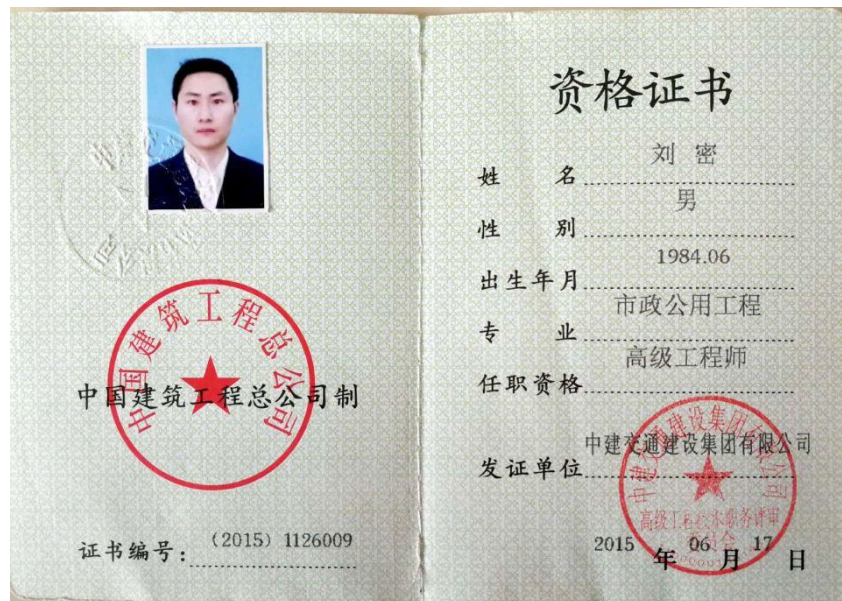 中国建筑工程总公司
中国建筑工程总公司制
证书编号：（2015）1126009
资格证书
姓名 刘 密
性别 男
出生年月 1984.06
专业 市政公用工程
任职资格 高级工程师
发证单位 中建交通建设集团有限公司
中建交通建设集团有限公司
高级工程技术职务评审
委员会
2015 年 06 月 17 日